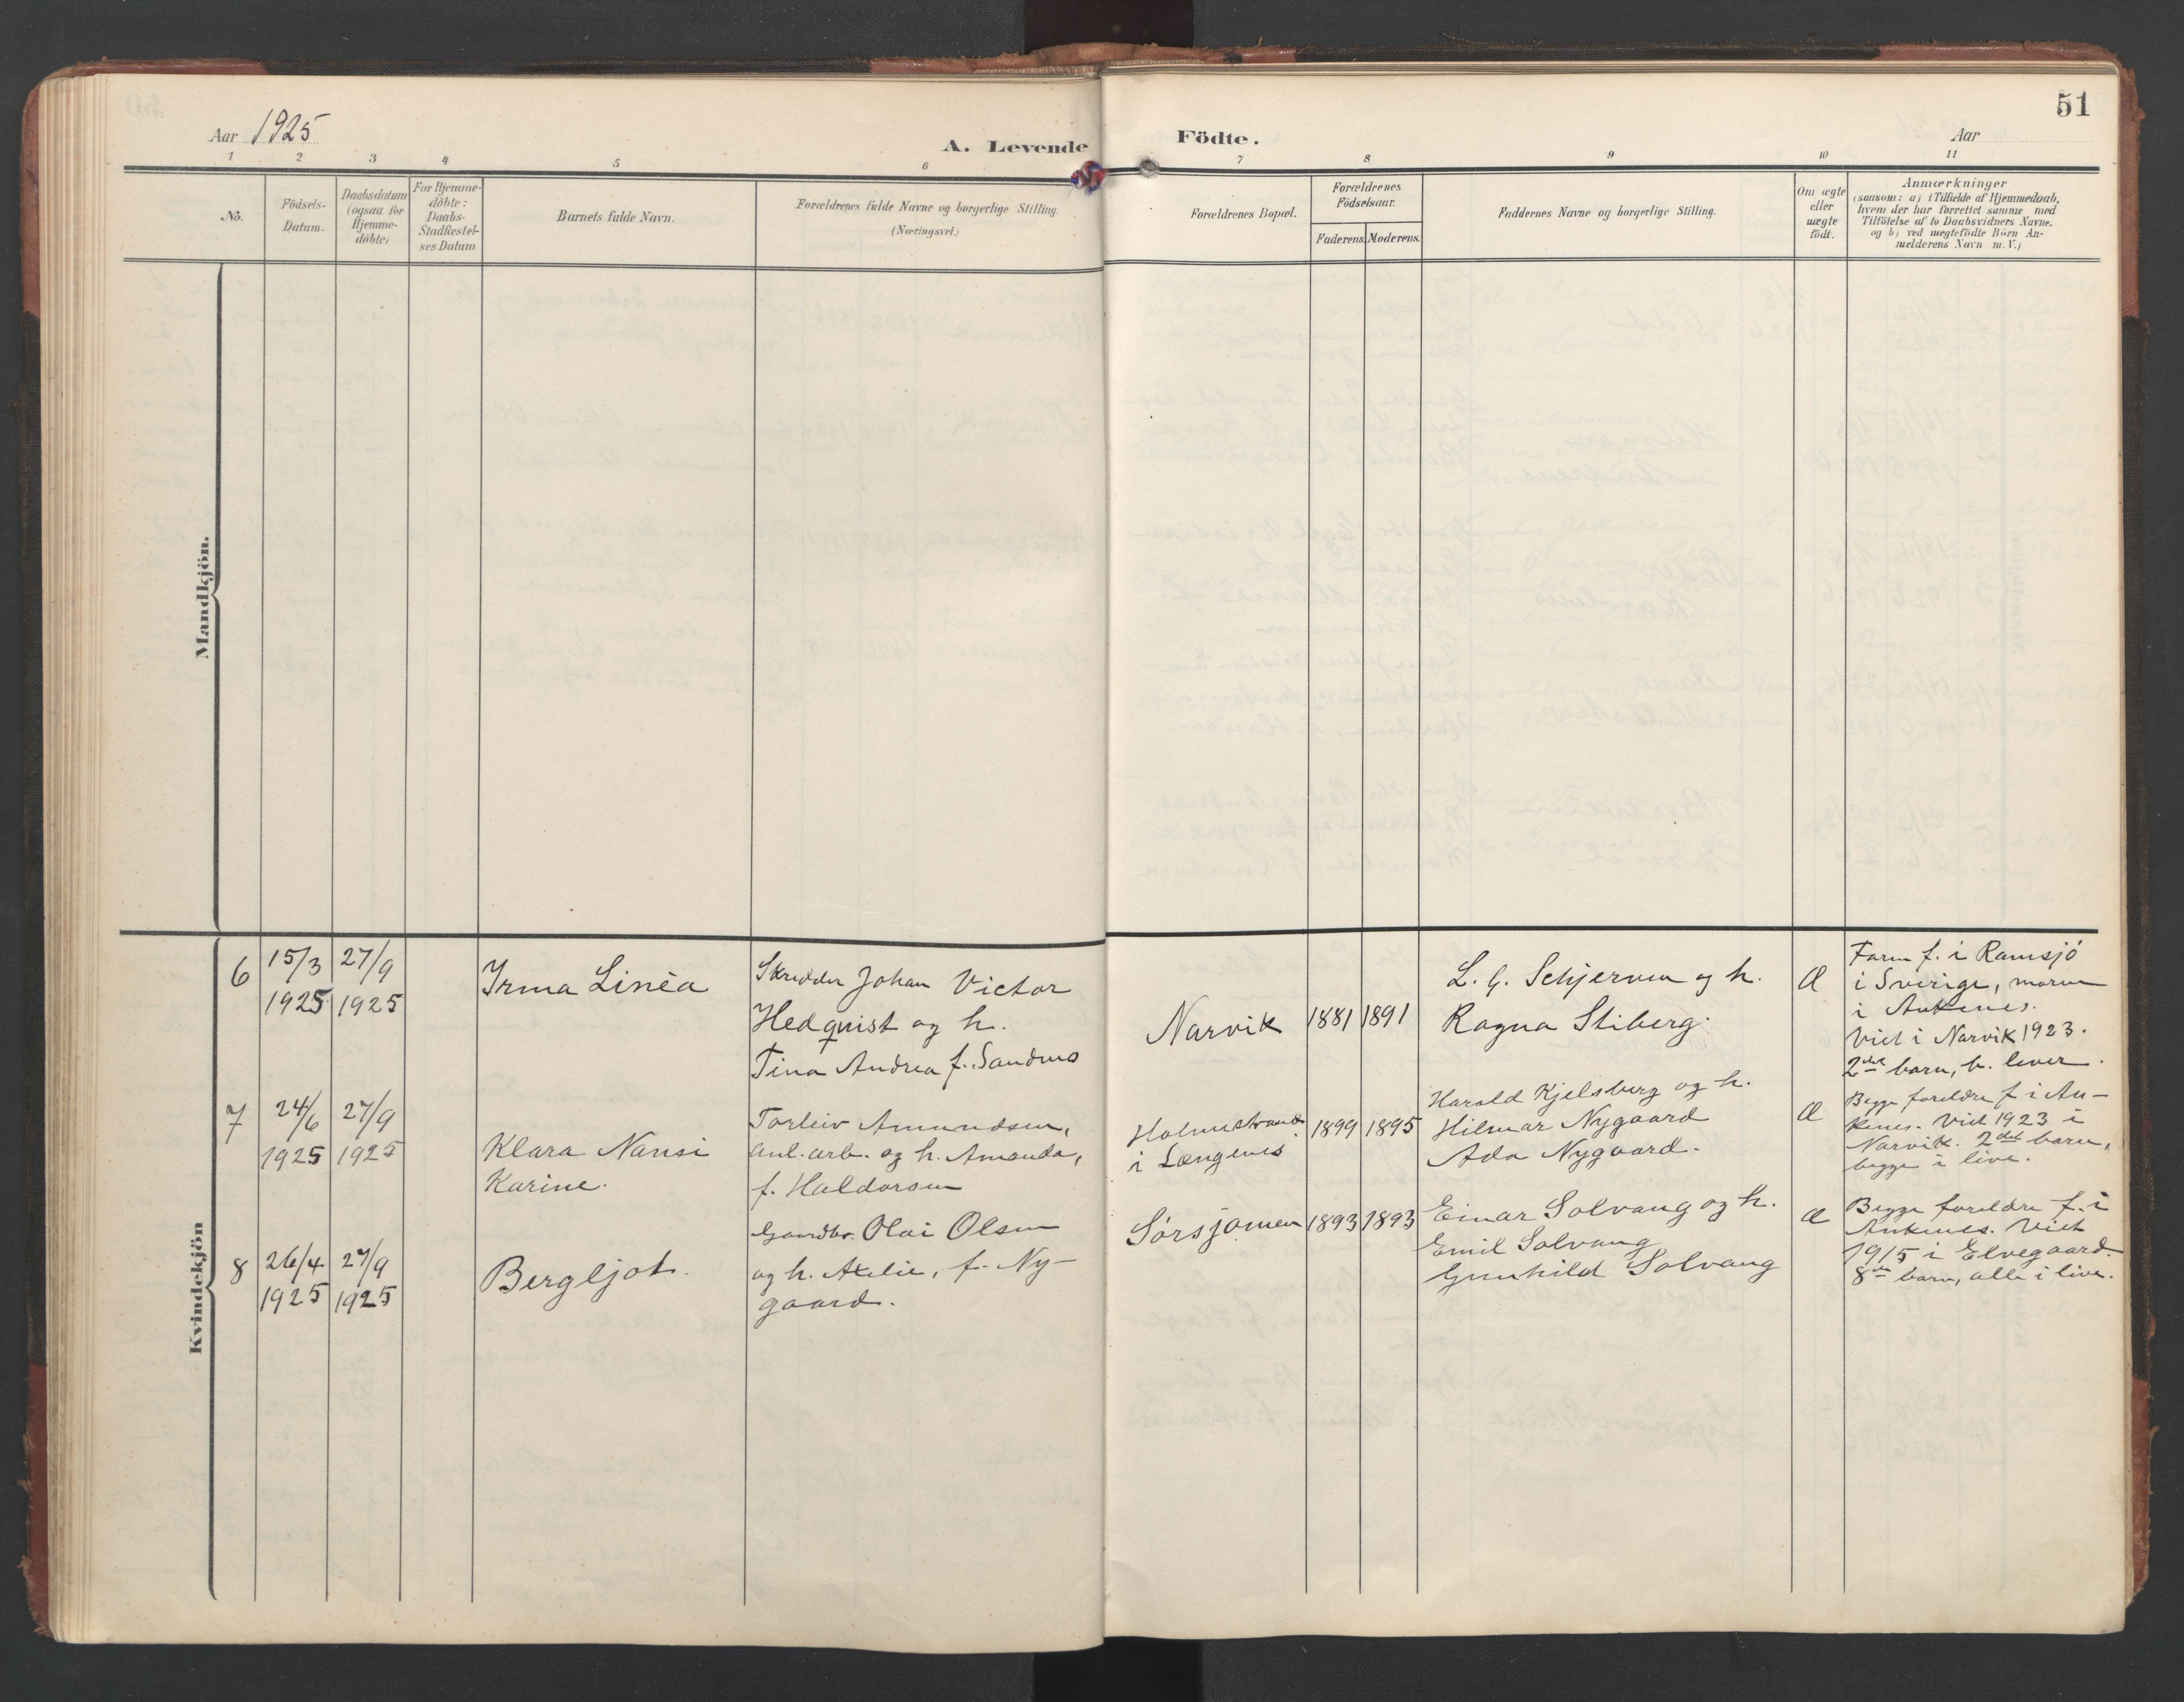 51
Aar 1925
A. Levende Födte.
Aar
1 2 3 4 5 6 7 8 9 10 11
No.
Födsels-
Datum.
Daabsdatum
(ogsaa for
Hjemme-
döbte)
For Hjemme-
döbte:
Daabs-
Stadfæstel-
ses Datum
Barnets fulde Navn.
Forældrenes fulde Navne og borgerlige Stilling.
(Næringsvei.)
Forældrenes Bopæl.
Forældrenes
Födselsaar.
Faderens. Moderens.
Faddernes Navne og borgerlige Stilling.
Om ægte
eller
uægte
födt.
Anmærkninger
(saasom: a) i Tilfælde af Hjemmedaab,
hvem der har forrettet samme med
Tilföielse af to Daabsvidners Navne.
og b) ved uægtefödte Börn An-
melderens Navn m. V.)
Mandkjön.
Kvindekjön
6
15/3
1925
27/9
1925
Irma Linèa
Skrædder Johan Victor
Hedqvist og h.
Tina Andrea f. Sandmo
Narvik
1881 1891
L. G. Schjerven og h.
Ragna Stiberg.
Æ
Faren f. i Ramsjö
i Sverige, moren
i Ankenes.
Viet i Narvik 1923.
2det barn, b. lever.
7
24/6
1925
27/9
1925
Klara Nansi
Karine.
Torleiv Amundsen,
anl. arb. og h. Amanda,
f. Haldorsen
Holmestrand
i Længenes
1899 1895
Harald Kjelsberg og h.
Hilmar Nygaard
Ada Nygaard.
Æ
Begge foreldre f. i An-
kenes. Viet 1923 i
Narvik. 2det barn,
begge i live.
8
26/4
1925
27/9
1925
Bergljot.
Gaardbr. Olai Olsen
og h. Axelie, f. Ny-
gaard.
Sörsjomen
1893 1893
Einar Solvang og h.
Emil Solvang
Gunhild Solvang
Æ
Begge foreldre f. i
Ankenes. Viet
1915 i Elvegaard.
8de barn, alle i live.